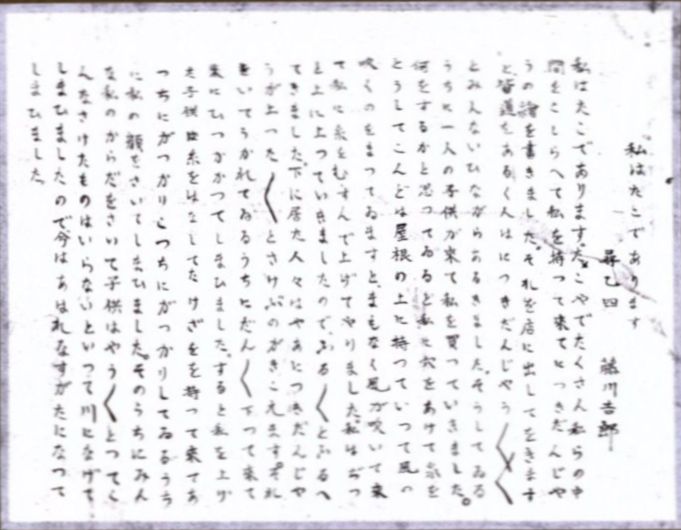 私はたこであります
尋乙四　藤川吉郎
私はたこであります。たこやでたくさん私らの中
間をこしらへて私を持つて来てにつきだんじや
うの繪を書きました。それを店に出してをきます
と皆道をあるく人はにつきだんじやう〳〵
とみんないひながらあるきました。そうしてゐる
うちに一人の子供が来て私を買つていきました。
何をするかと思つてゐると私に穴をあけて糸を
とうしてこんどは屋根の上に持つていつて風の
吹くのをまつてゐますと、まもなく風が吹いて来
て私に糸をむすんで上げてやりました。私はだつ
と上に上つていきましたので、ふる〳〵とふるへ
てきました。下に居た人々はやあにつきだんじや
うが上つた〳〵とさけぶのがきこえます。それ
をいてうかれてゐるうちにだん〳〵下つて来て
木にひつかかつてしまひました。すると私を上げ
た子供は糸をはなしてたけざをを持つて来てあ
つちにがつかりこつちにがつかりしてゐるうち
に私の顔をさいてしまひました。そのうちにみん
な私のからだをさいて子供はやう〳〵とつてこ
んなさけたものはいらないといつて川になげて
しまひましたので今はあはれなすがたになつて
しまひました。